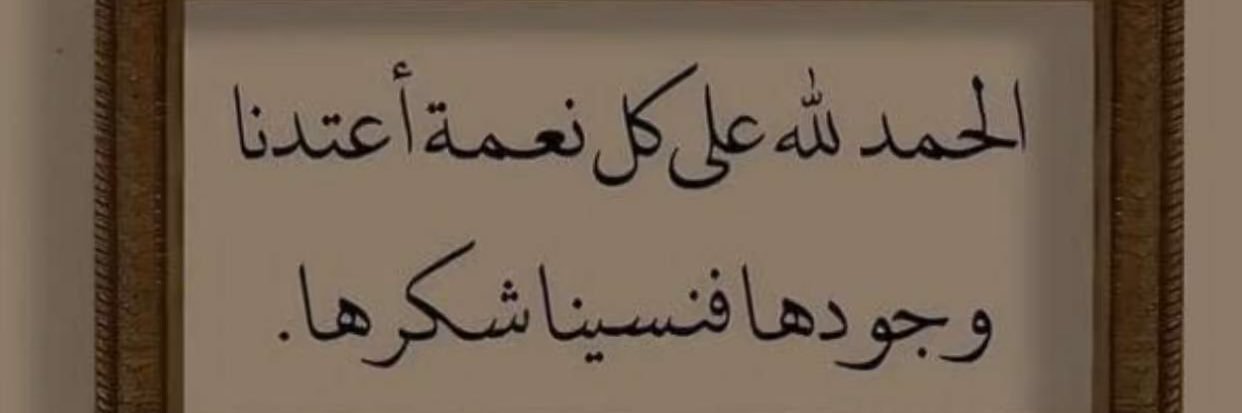 الحمد لله على كل نعمة أعتدنا
وجودها فنسينا شكرها.